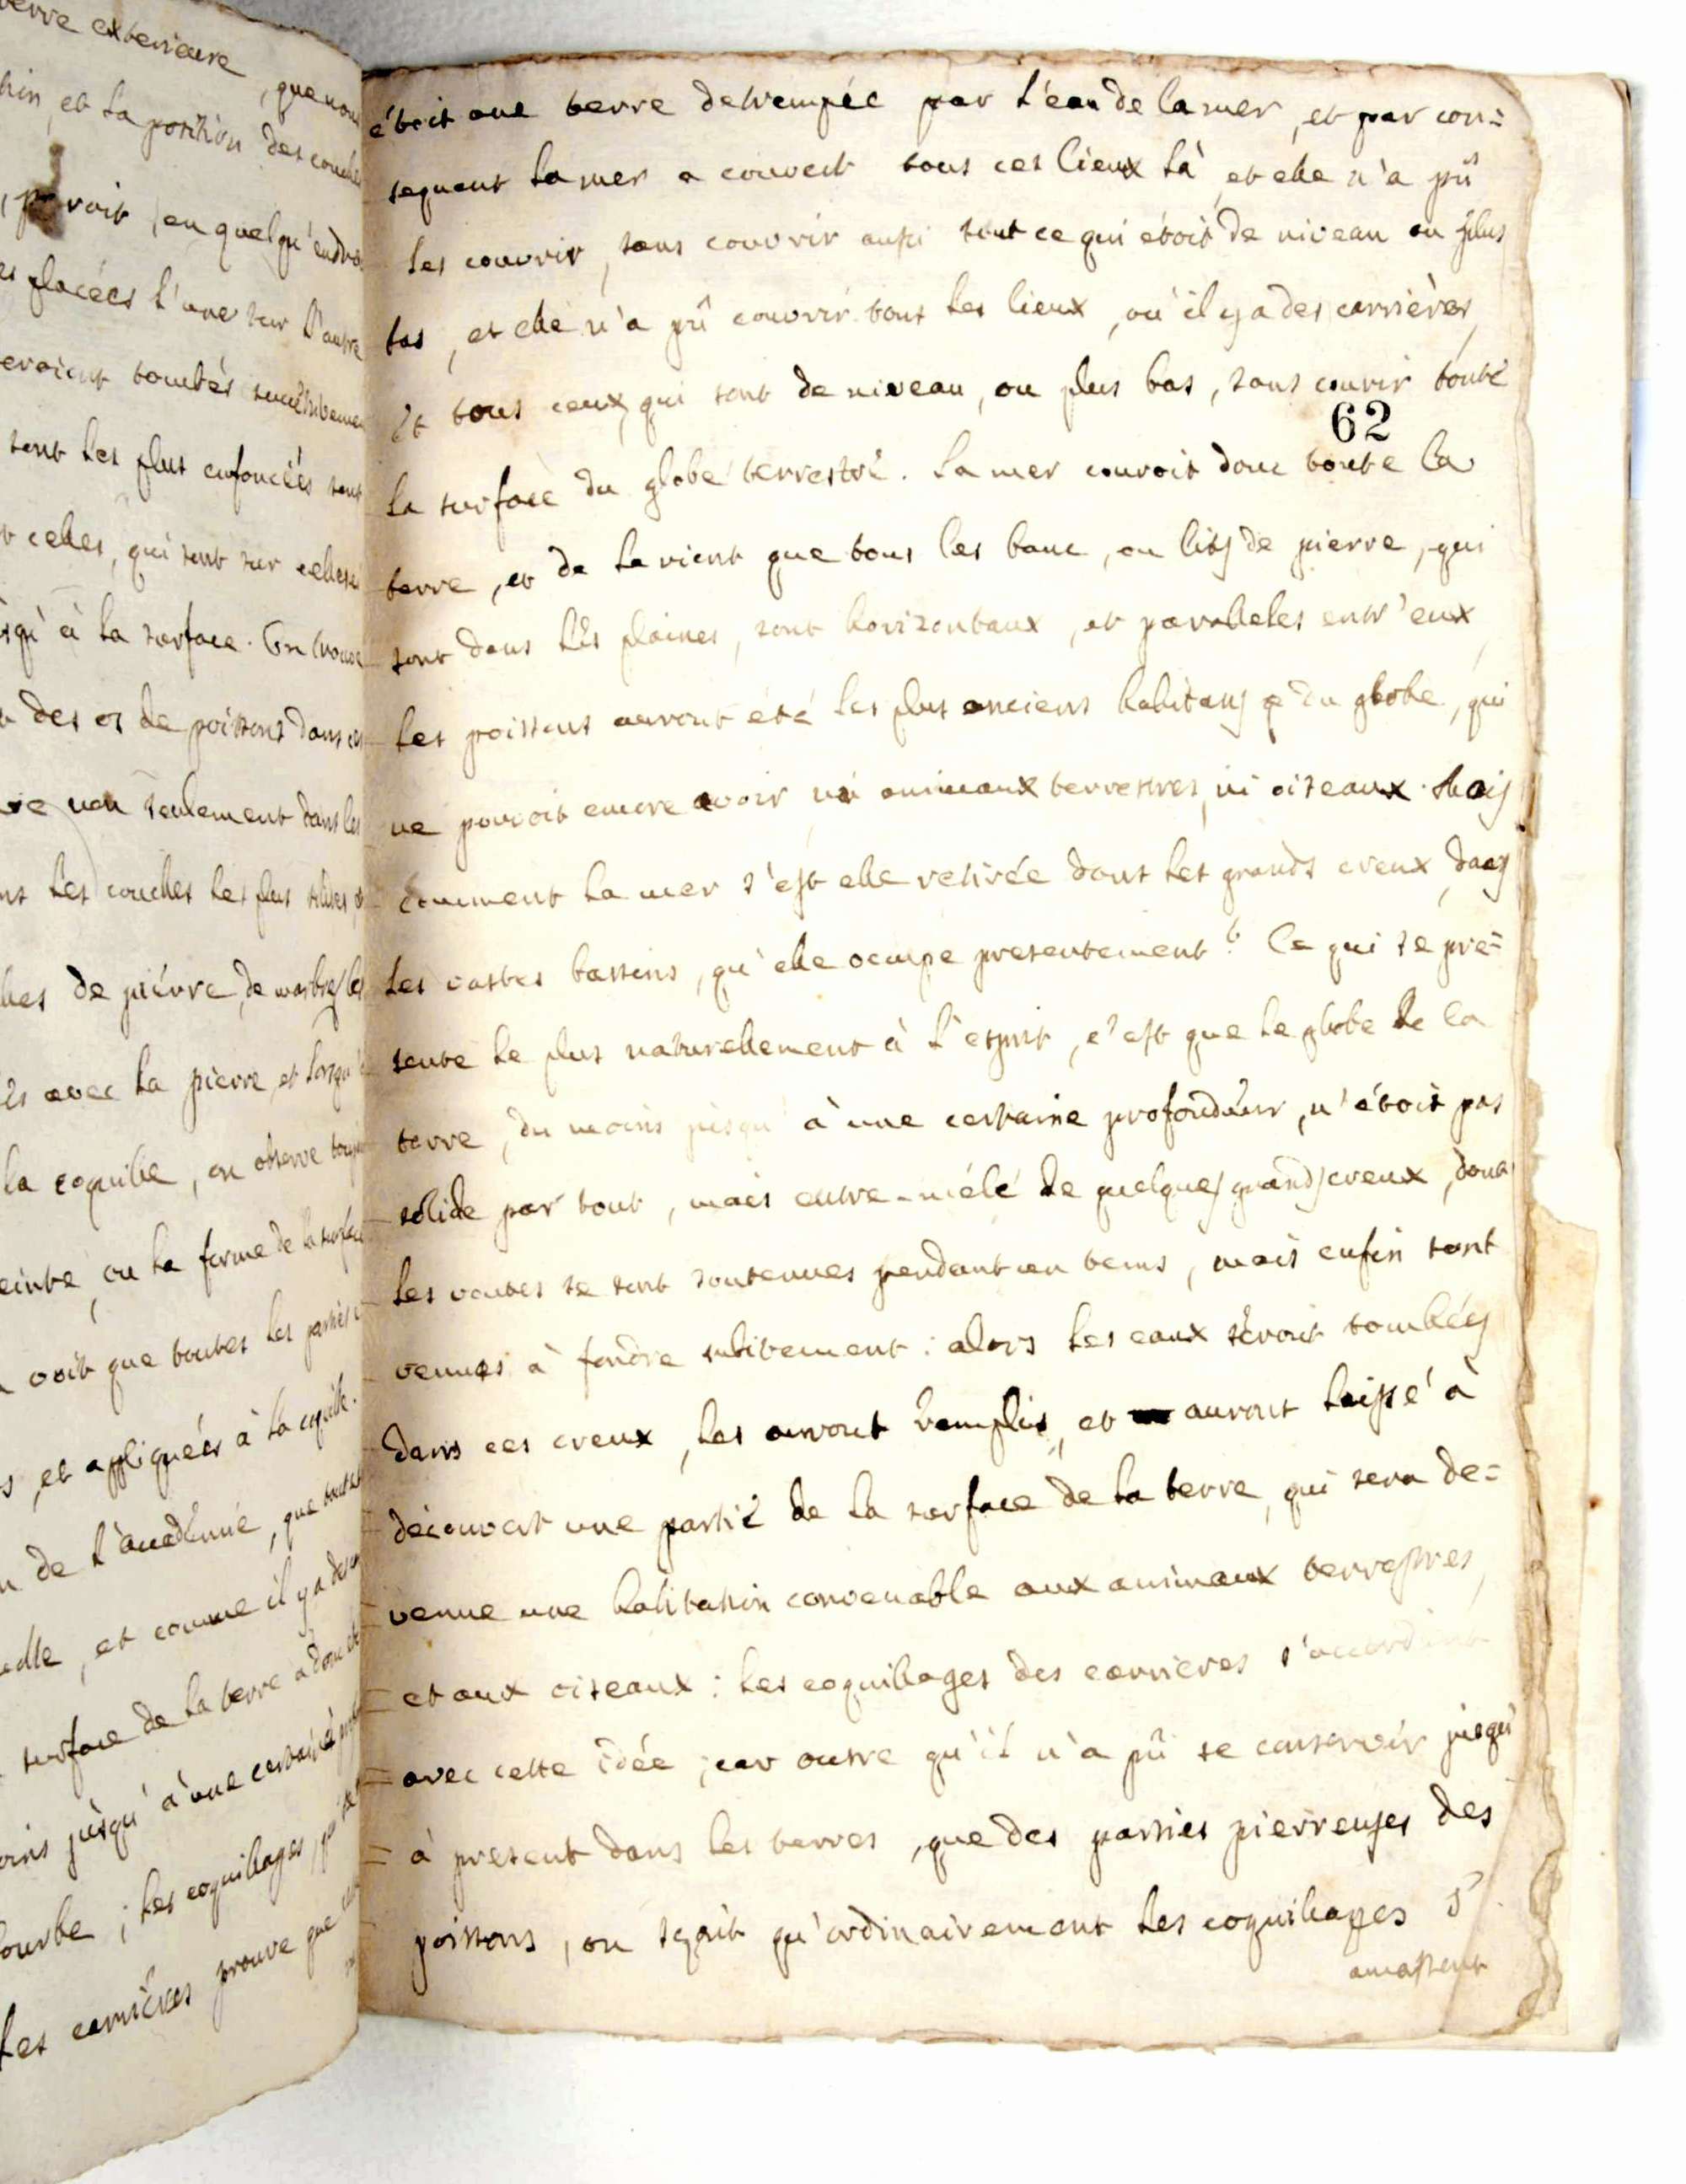 terre exterieure, que nous
et la position des couches
paroit, en quelqu'endroit
placées l'une sur l'autre
seroient tombés successivement
sont les plus enfoncées sont
celles, qui sont sur celles ci
jusqu'à la surface. On trouve
des os de poissons dans ces
non seulement dans les
les couches les plus
de piérre, de marbre, les
avec la pierre, et lorsqu'
la coquille, on observe
ou la forme de la surface
voit que toutes les parties
et appliquées à la coquille.
de l'academie, que
et comme il y a des
surface de la terre a donc été
jusqu'à une certaine
bourbe ; les coquillages,
les carrières prouve que
étoit une terre detrempée par l'eau de la mer, et par con=
sequent la mer a couvert tous ces lieux là, et elle n'a pû
les couvrir, sans couvrir aussi tout ce qui étoit de niveau ou plus
bas, et elle n'a pû couvrir tous les lieux, où il y a des carrières,
et tous ceux, qui sont de niveau, ou plus bas, sans couvrir toute
62
la surface du globe terrestre. La mer couvroit donc toute la
terre, et de la vient que tous les banc, ou lits de pierre, qui
sont dans les plaines, sont horizontaux, et paralleles entr'eux,
les poissons auront été les plus anciens habitans du globe, qui
ne pouvoit encore avoir ni animaux terrestres, ni oiseaux. Mais
comment la mer s'est elle retirée dans les grands creux, dans
les vastes bassins, qu'elle occupe presentement? Ce qui se pré=
sente le plus naturellement à l'esprit, c'est que le globe de la
terre, du moins jusqu'à une certaine profondeur, n'étoit pas
solide par tout, mais entre-mélé de quelques grands creux, dont
les voutes se sont soutenues pendant un tems, mais enfin sont
venues à fondre subitement : alors les eaux seront tombées
dans ces creux, les auront remplis, et auront laissé à
découvert une partie de la surface de la terre, qui sera de=
venue une habitation convenable aux animaux terrestres,
et aux oiseaux : les coquillages des carrieres s'accordent
avec cette idée ; car outre qu'il n'a pû se conserver jusqu'
à present dans les terres, que des parties pierreuses des
poissons, on sçait qu'ordinairement les coquillages s'
amassent